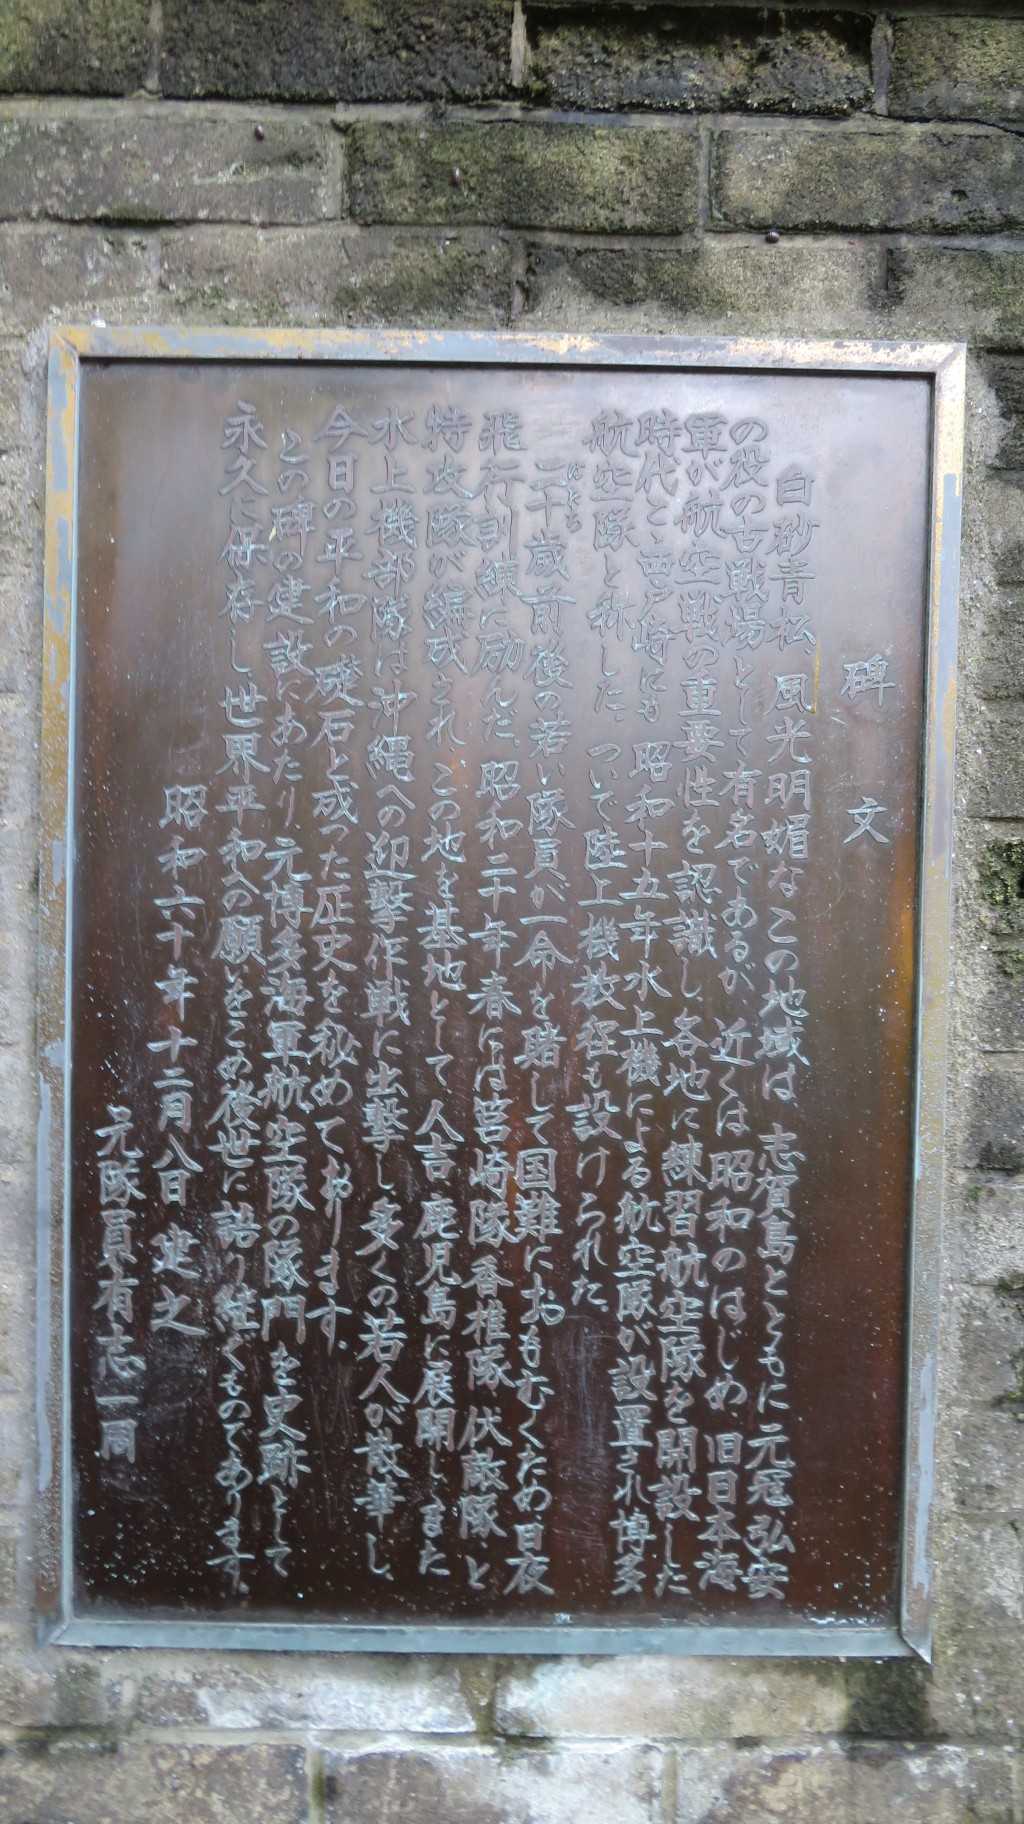 碑文
白砂青松 風光明媚なこの地域は 志賀島とともに元寇 弘安
の役の古戦場として有名であるが、近くは 昭和のはじめ、旧日本海
軍が航空戦の重要性を認識し、各地に練習航空隊を開設した
時代に
崎にも 昭和十五年水上機による航空隊が設置され 博多
航空隊と称した。ついで陸上機教程も設けられた。
二十歳前後の若い隊員が一命を賭して国難におもむくため、日夜
はたち
飛行訓練に励んだ。昭和二十年春には筥崎隊、香椎隊、伏敵隊、と
特攻隊が編成され、この地を基地として 人吉 鹿児島に展開しまた
水上機部隊は沖縄への迎撃作戦に出撃し、多くの若人が散華し、
今日の平和の礎石と成った圧史を秘めております。
この碑の建設にあたり、元博多海軍航空隊の隊門を史跡として
永久に保存し世界平和への願いをこめ後世に語り継ぐものであります。
昭和六十年十二月八日 建之
元隊員有志一同